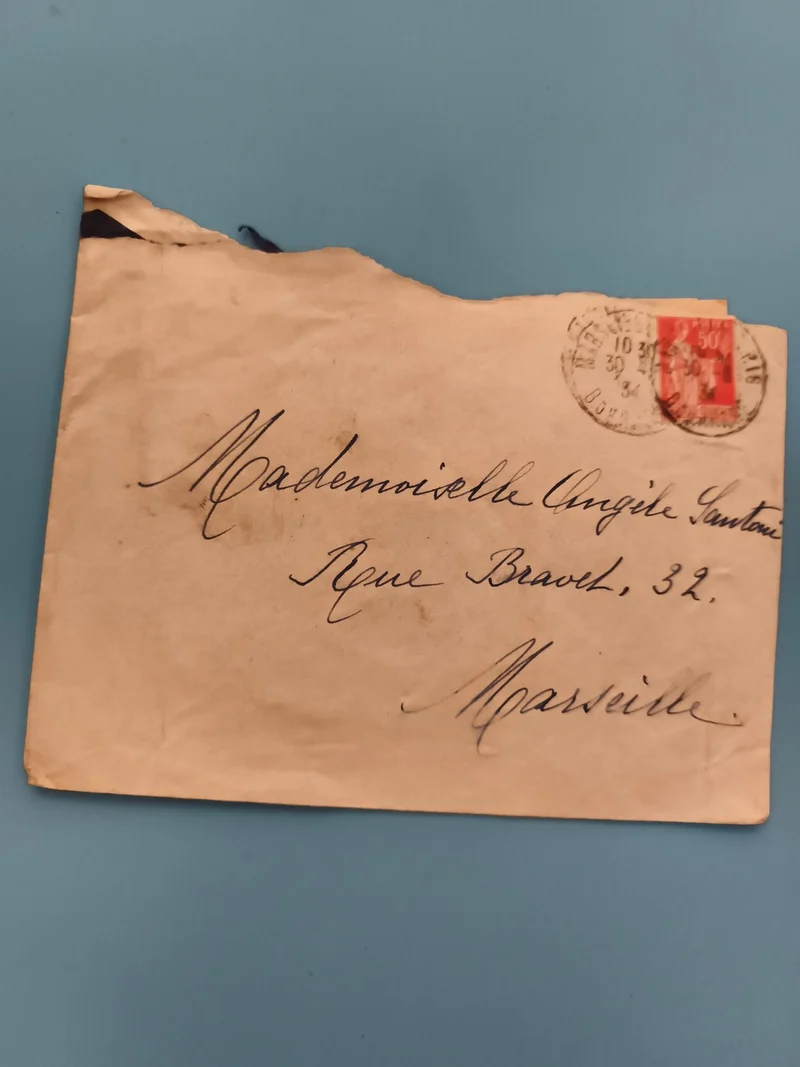 50
10 30
30
34
Mademoiselle Angèle Santoni
Rue Bravet, 32.
Marseille.